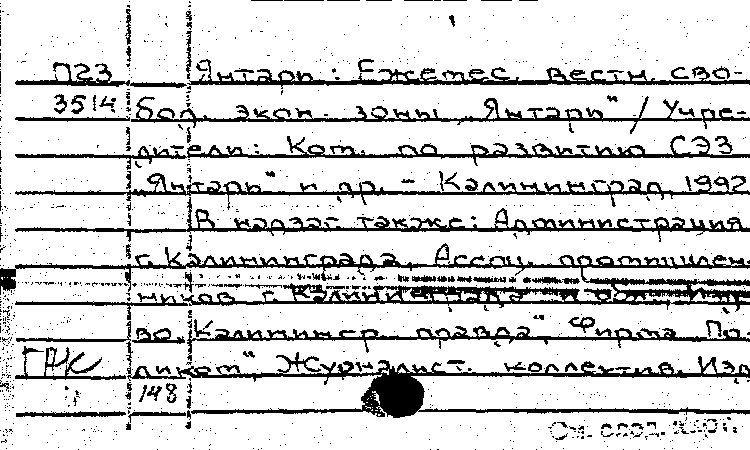 П23 Янтарь : Ежемес. вестн. сво-
3514 бод. экон. зоны „Янтарь" / Учре-
дители: Ком. по развитию СЭЗ
„Янтарь" и др. – Калининград, 1992
В надзаг. также: Администрация
г. Калининграда, Ассоц. промышлен-
ников г. Калининграда и обл., Изд-
во „Калинингр. правда", Фирма „По-
ликом", Журналист. коллектив. Изд
148
См. след. карт.